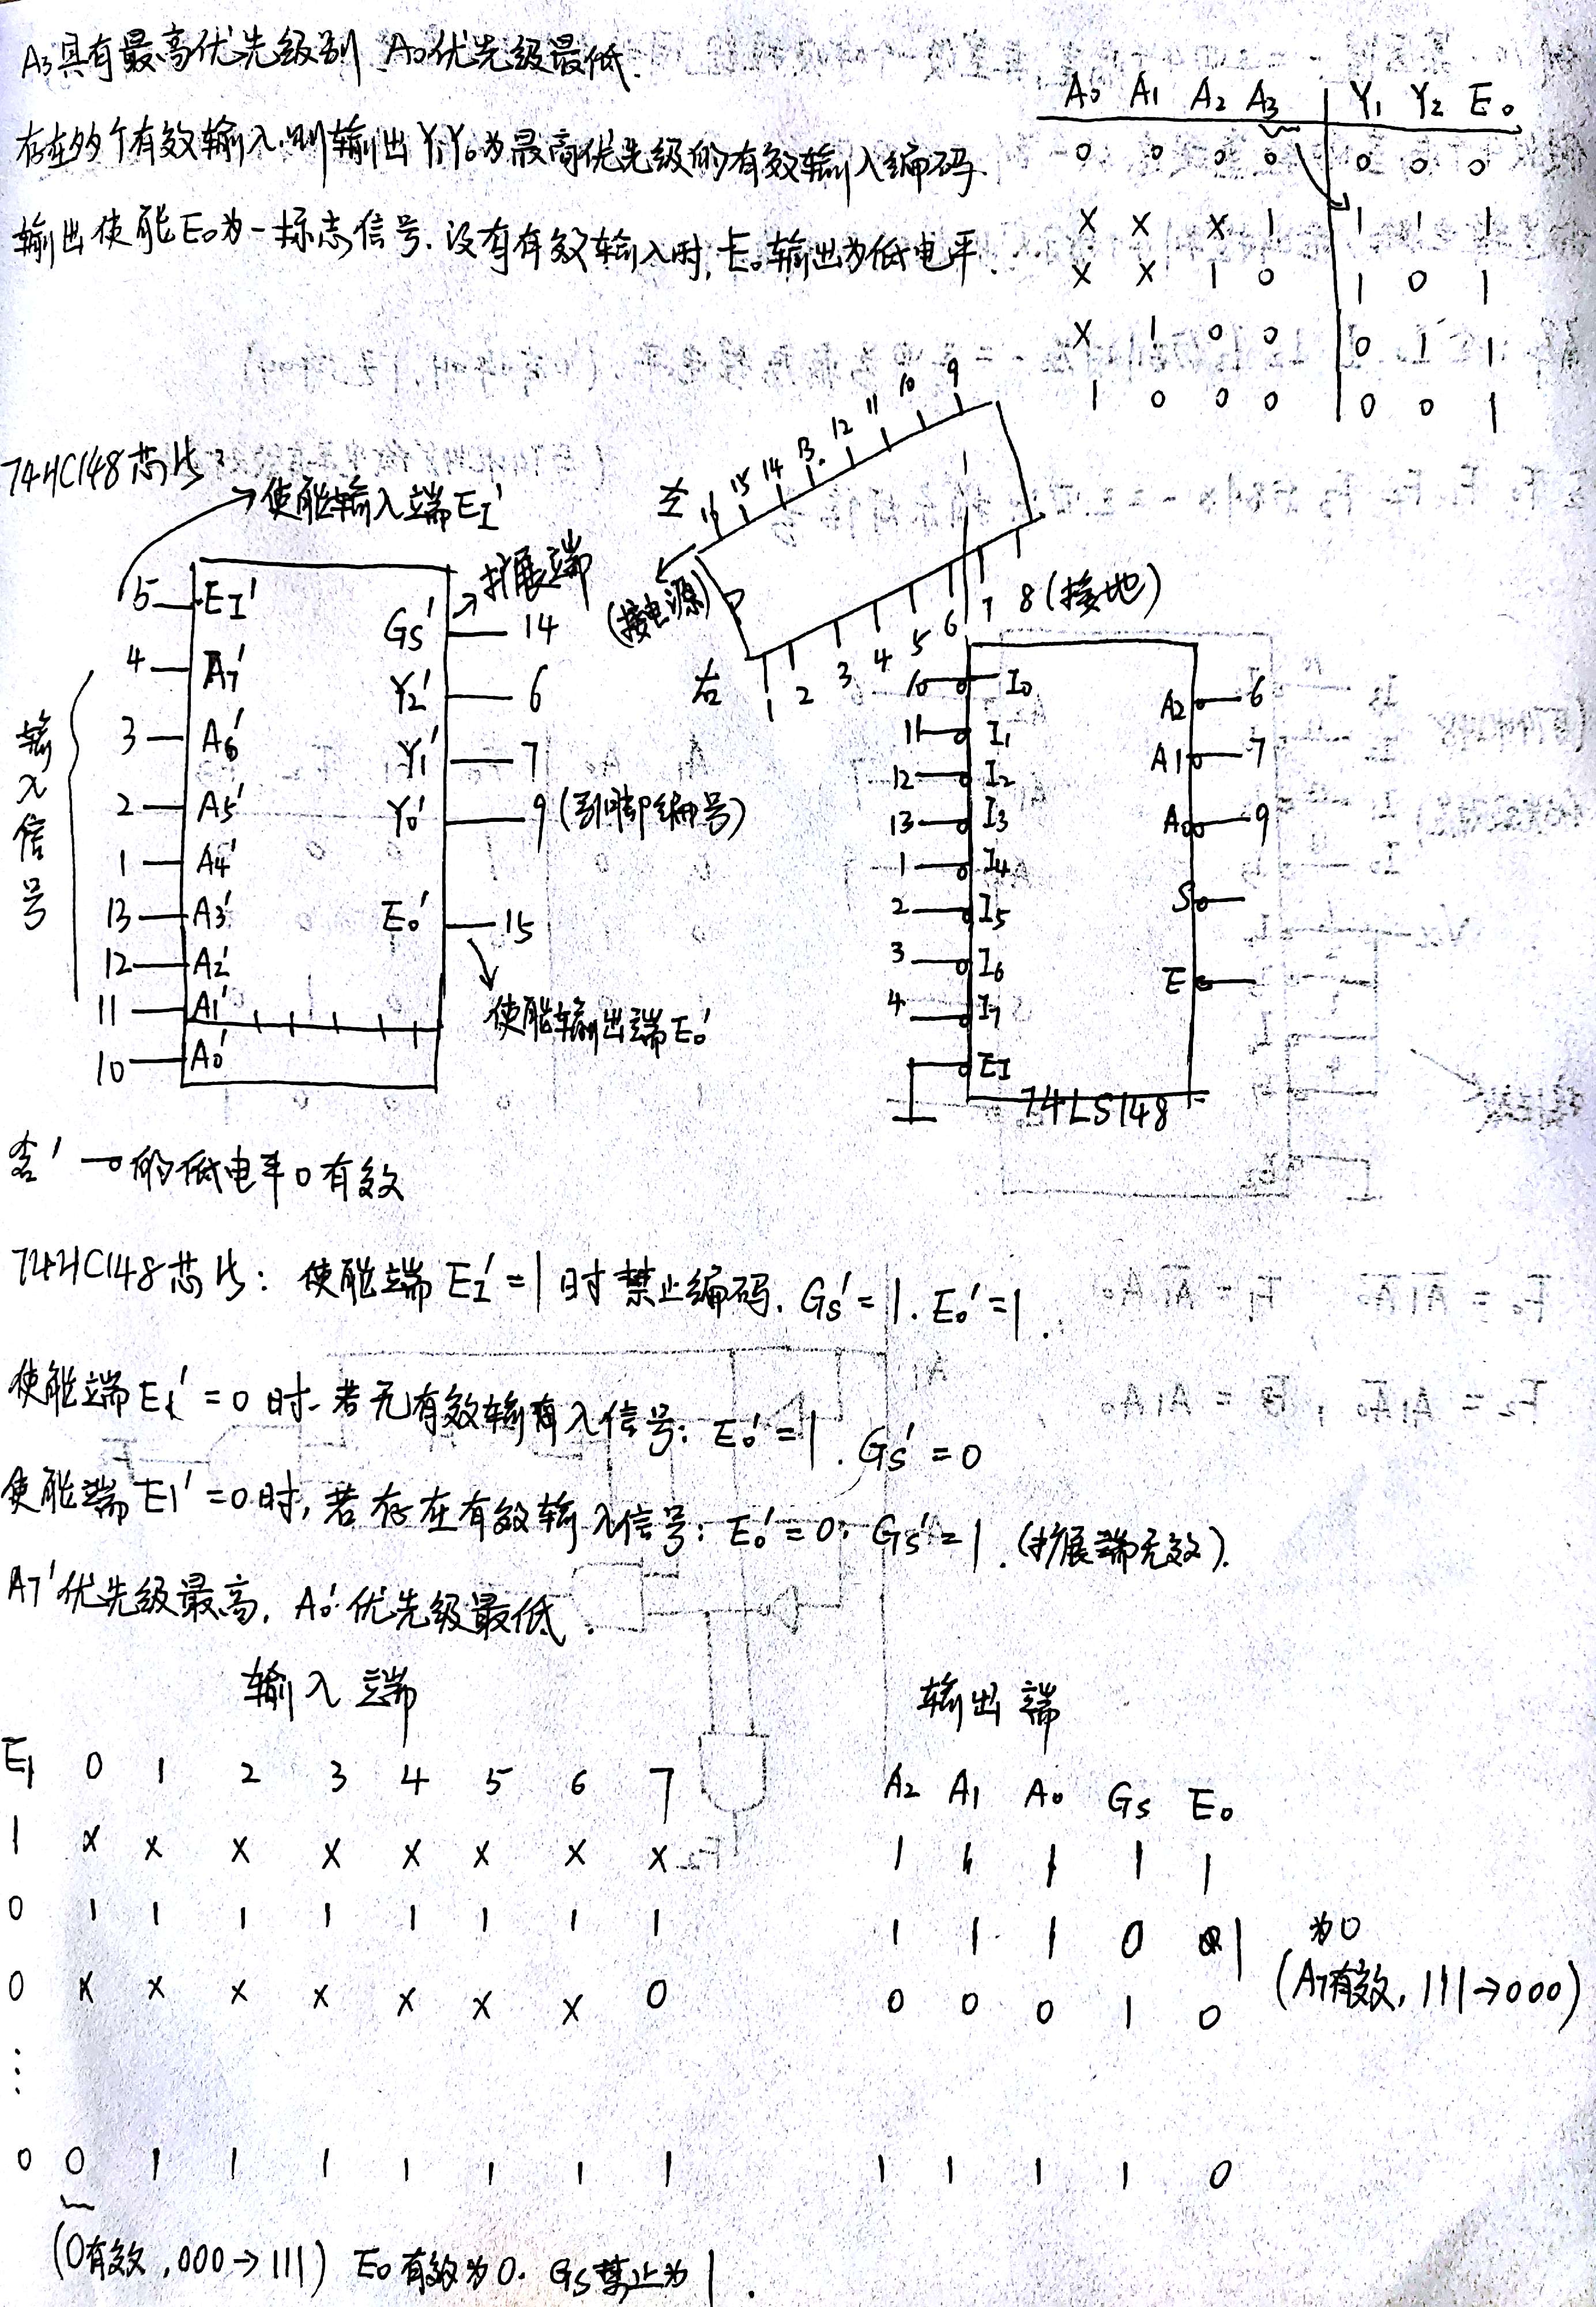 A3具有最高优先级别 A0优先级最低.
存在多个有效输入.则输出Y1Y0为最高优先级的有效输入编码.
输出使能E0为一标志信号.没有有效输入时,E0输出为低电平.
A0 A1 A2 A3 Y1 Y2 E0
0 0 0 0 0 0 0
X X X 1 1 1 1
X X 1 0 1 0 1
X 1 0 0 0 1 1
1 0 0 0 0 0 1
74HC148芯片:
使能输入端EI'
5 EI'
4 A7'
3 A6'
2 A5'
1 A4'
13 A3'
12 A2'
11 A1'
10 A0'
输入信号
扩展端
GS' 14
Y2' 6
Y1' 7
Y0' 9 (引脚编号)
E0' 15
使能输出端E0'
左 16 15 14 13 12 11 10 9
(接电源)
右 1 2 3 4 5 6 7 8 (接地)
10 I0
11 I1
12 I2
13 I3
1 I4
2 I5
3 I6
4 I7
EI
A2 6
A1 7
A0 9
S
E
74LS148
含' 的低电平0有效
74HC148芯片: 使能端EI'=1时禁止编码. GS'=1. E0'=1.
使能端EI'=0时.若无有效输入信号: E0'=1. GS'=0
使能端EI'=0时,若存在有效输入信号: E0'=0. GS'=1. (扩展端无效).
A7'优先级最高, A0'优先级最低.
输入端 输出端
EI 0 1 2 3 4 5 6 7 A2 A1 A0 GS E0
1 X X X X X X X X 1 1 1 1 1
0 1 1 1 1 1 1 1 1 1 1 1 0 1
为0
0 X X X X X X X 0 0 0 0 1 0 (A7有效, 111→000)
⋮
0 0 1 1 1 1 1 1 1 1 1 1 1 0
(0有效,000→111) E0有效为0. GS禁止为1.